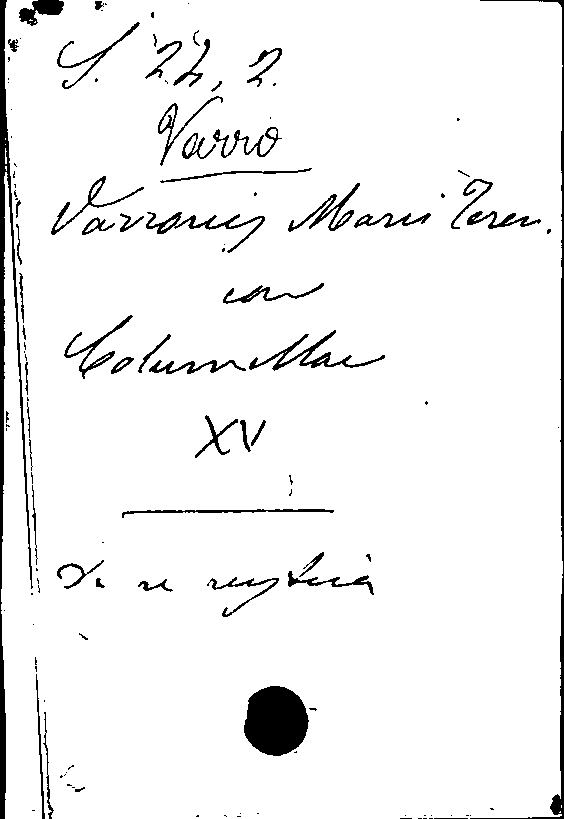 S. 22, 2.
Varro
Varronis Marci Teren.
con
Columellae
XV
De re rustica